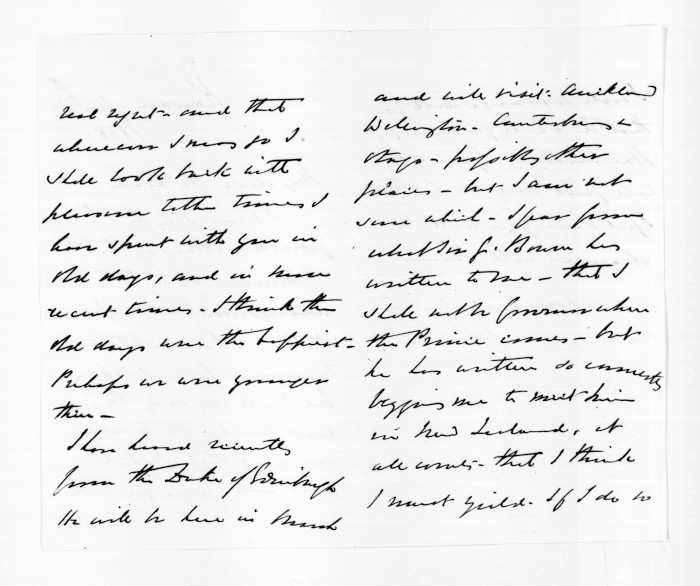 real regret - and that
wherever I may go I
shall look back with
pleasure to the times I
have spent with you in
old days, and in more
recent times - I think the
old days were the happiest -
Perhaps we were younger
then -
I have heard recently
from the Duke of Edinburgh
He will be here in March
and will visit Auckland
Wellington - Canterbury &
Otago - possibly other
places - but I am not
sure which - I fear from
what Sir G. Bowen has
written to me - that I
shall not be Governor when
the Prince comes - but
he has written so earnestly
begging me to meet him
in New Zealand, at
all events - that I think
I must yield - If I do so